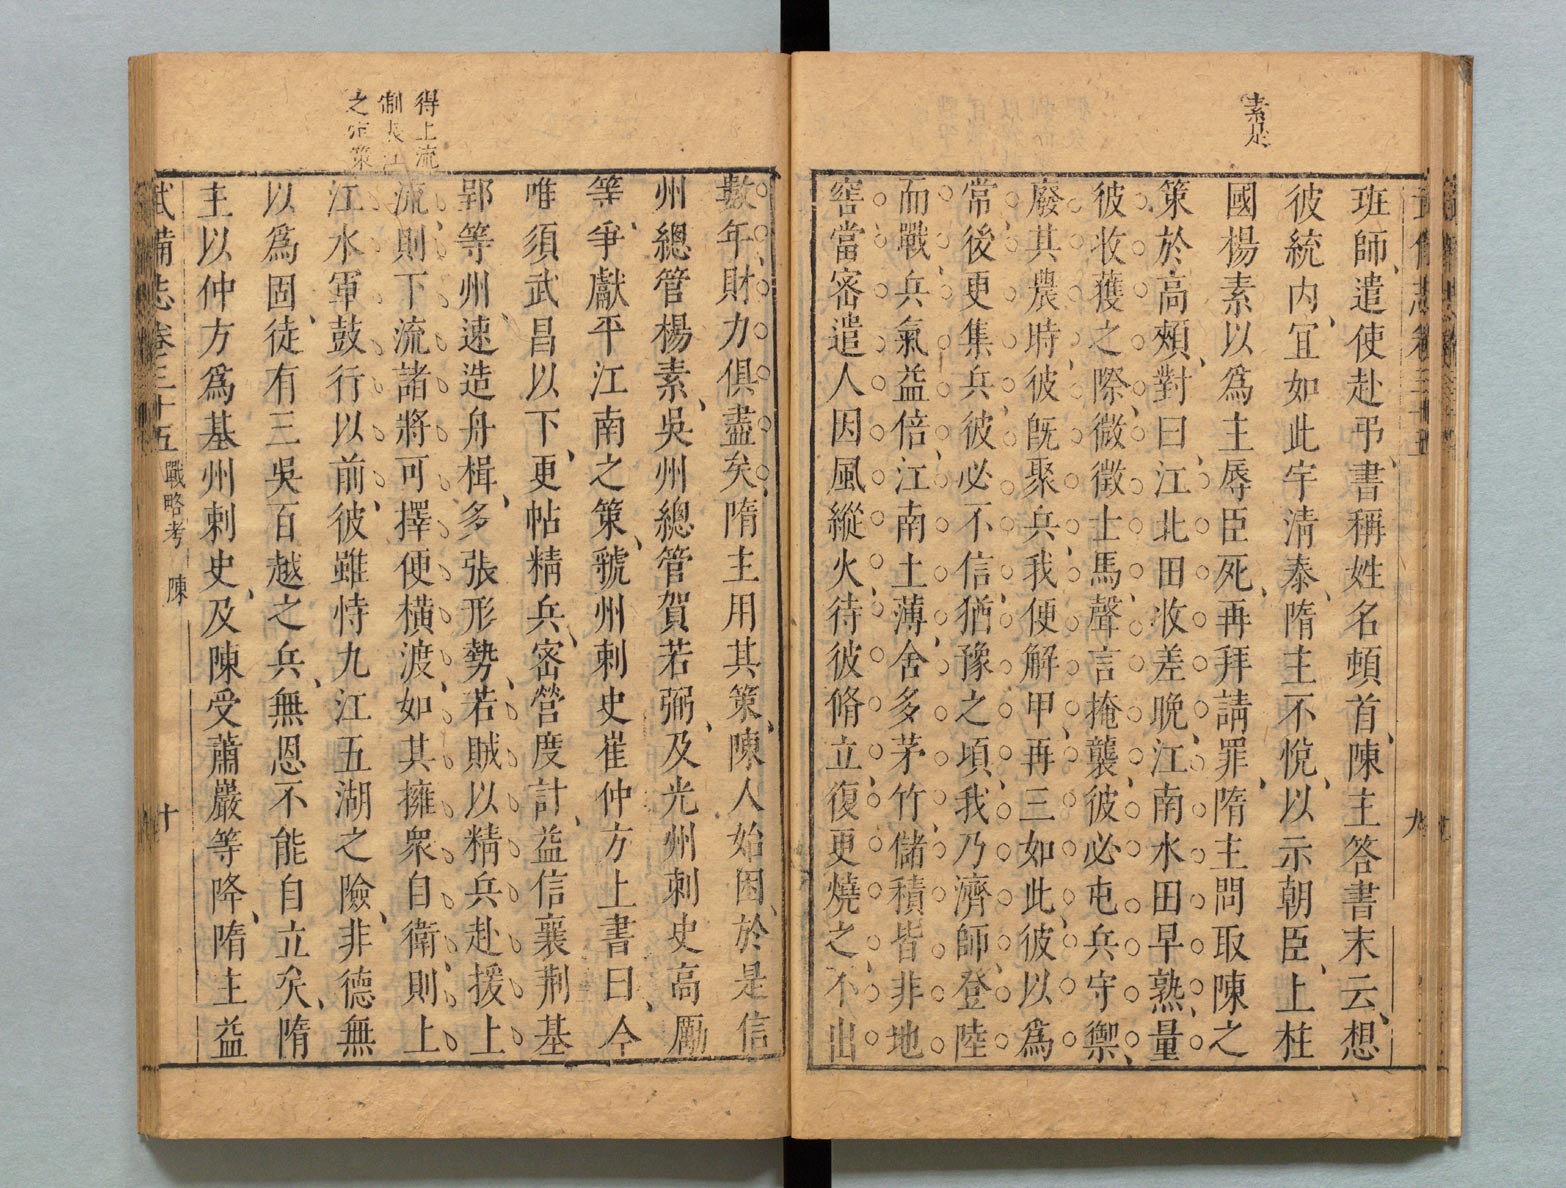 素是
班師、遣使赴弔、書稱姓名頓首、陳主答書末云、想
彼統内、宜如此宇清泰、隋主不悅、以示朝臣、上柱
國楊素以爲主辱臣死、再拜請罪、隋主問取陳之
策於高熲、對曰、江北田收差晚、江南水田早熟、量
彼收獲之際、微徵士馬、聲言掩襲、彼必屯兵守禦、
廢其農時、彼旣聚兵、我便解甲、再三如此、彼以爲
常、後更集兵、彼必不信、猶豫之頃、我乃濟師、登陸
而戰、兵氣益倍、江南土薄、舍多茅竹、儲積皆非地
窖、當密遣人因風縱火、待彼脩立、復更燒之、不出
九
得上流
制長江
之定策
數年、財力俱盡矣、隋主用其策、陳人始困、於是信
州總管楊素、吳州總管賀若弼、及光州刺史高勵
等、爭獻平江南之策、虢州刺史崔仲方上書曰、今
唯須武昌以下、更帖精兵、密營度計、益信襄荆基
郢等州、速造舟楫、多張形勢、若賊以精兵赴援上
流、則下流諸將可擇便橫渡、如其擁衆自衛、則上
江水軍鼓行以前、彼雖恃九江五湖之險、非德無
以爲固、徒有三吳百越之兵、無恩不能自立矣、隋
主以仲方爲基州刺史、及陳受蕭巖等降、隋主益
武備志卷三十五 戰略考 陳 十